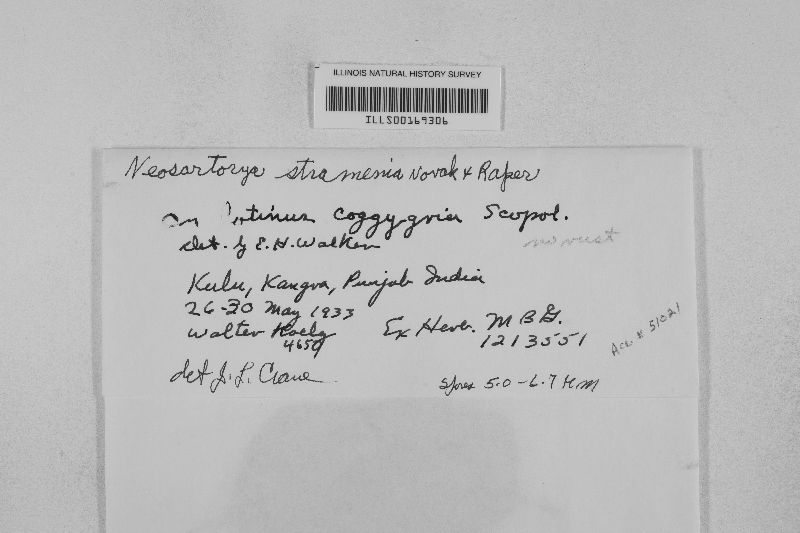 ILLINOIS NATURAL HISTORY SURVEY
ILLS00169306
Neosartorya stramenia Novak & Raper
on Cotinus Coggygria Scopol.
det. by E. H. Walker
no rust
Kulu, Kangra, Punjab India
26-30 May 1933
Walter Koelz
4650
Ex Herb. MBG.
1213551
Acc # 51021
det J. L. Crane
Spores 5.0-6.7 µm